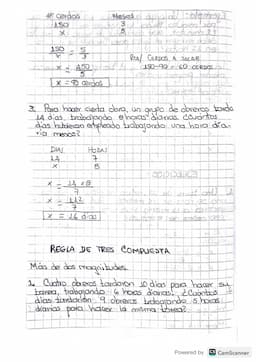 # cerdos    Meses
150    3
x    5
150/x = 5/3
R// CERDOS A SACAR
x = 450/5
150-90 = 60 cerdos
x = 90 cerdos
3. Para hacer cierta obra, un grupo de obreros tarda
14 días, trabajando horas diarias. ¿Cuántos
días hubieran empleado trabajando una hora dia-
ria menos?
DIAS    HORAS
14    7
x    8
x = 14 x 8 / 7
x = 112 / 7
x = 16 días
REGLA DE TRES COMPUESTA
Más de dos magnitudes.
1. Cuatro obreros tardaron 10 días para hacer su
tarea, trabajando 6 horas diarias. ¿Cuántos
días tardarán 9 obreros trabajando 5 horas
diarias para hacer la misma tarea?
Powered by CS CamScanner